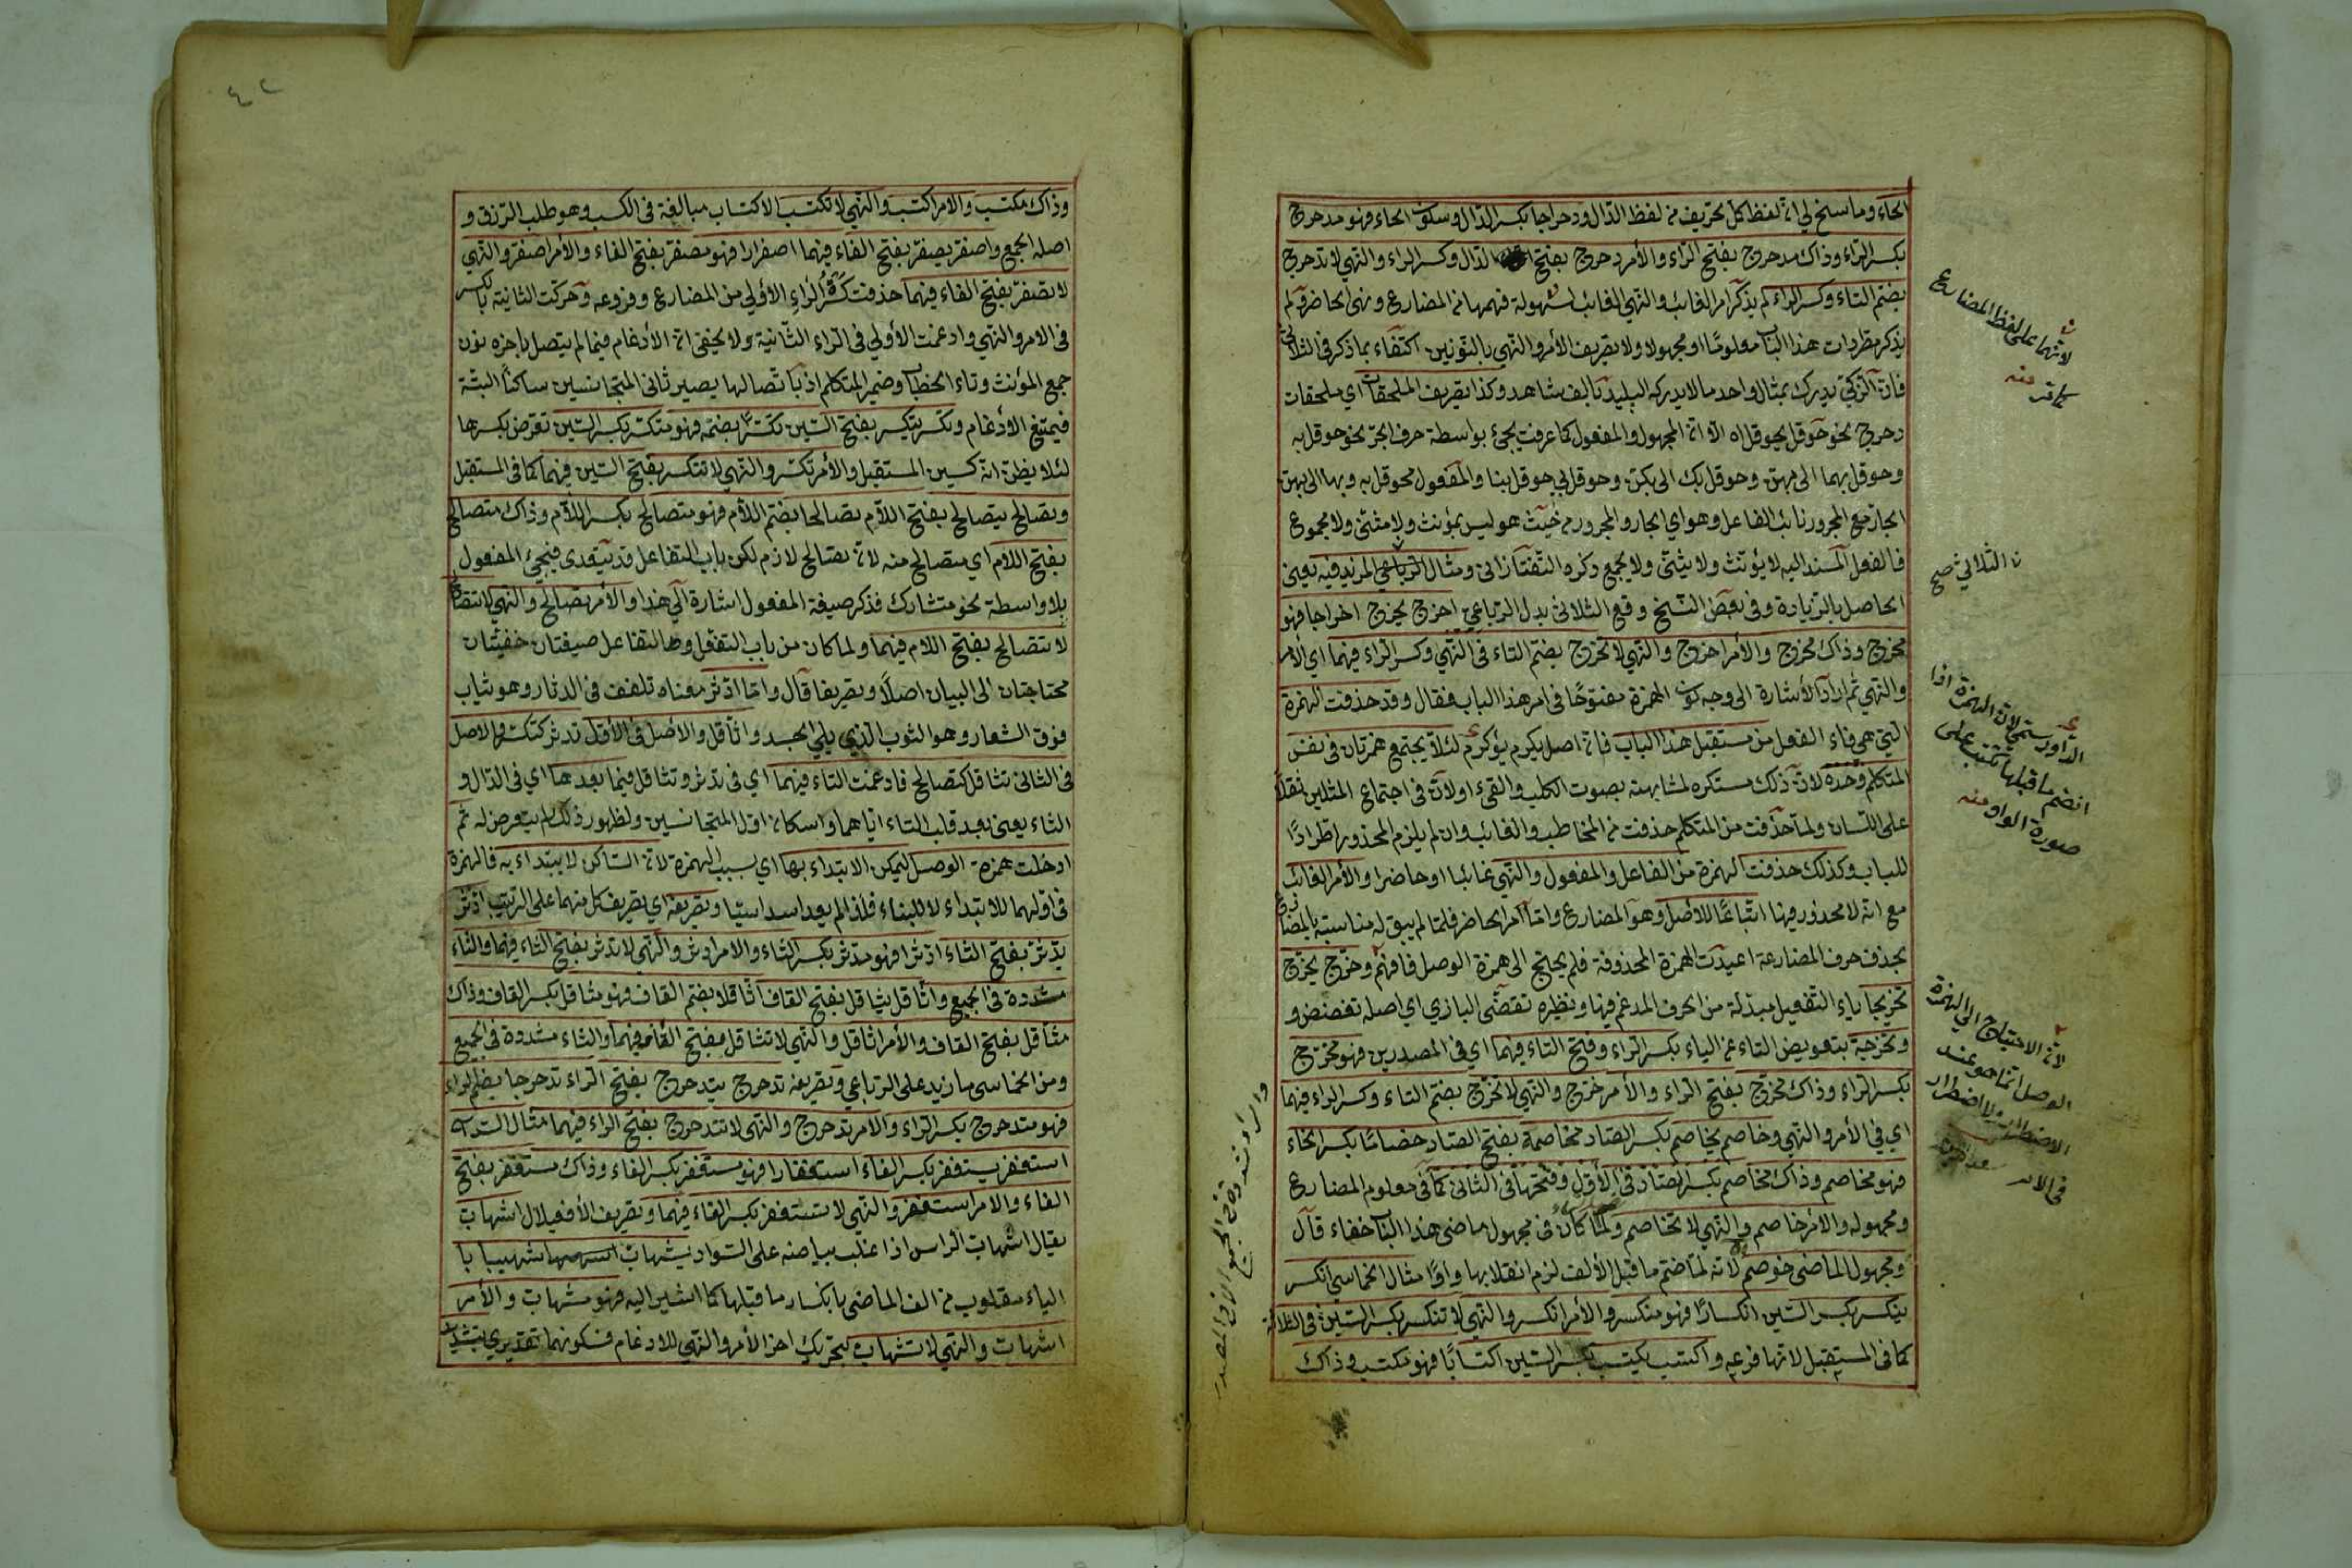 الحاء وما سنح لي ان لفظ كل تحريف من لفظ الدال ودحراجا بكسر الدال وسكون الحاء فهو مدحرج
بكسر الراء وذاك مدحرج بفتح الراء والأمر دحرج بفتح الدال وكسر الراء والنهي لا تدحرج
بضم التاء وكسر الراء لم يذكر امر الغائب والنهي الغائب لسهولة فهمهما من المضارع ونهى الحاضر ولم
يذكر مطردات هذا الباب معلومًا او مجهولا ولا تصريف الأمر والنهي بالنونين اكتفاء بما ذكر في الثلاثي
فان الزكي يدرك بمثال واحد ما لا يدركه البليد بالف شاهد وكذا تصريف الملحقات اي ملحقات
دحرج نحو حوقل يحوقل اه الا ان المجهول والمفعول كما عرفت يجئ بواسطة حرف الجر نحو حوقل به
وحوقل بهما الى بهن وحوقل بك الى بكن وحوقل بي حوقل بنا والمفعول محوقل به وبها الى بهن
الجار مع المجرور نائب الفاعل وهو اي الجار والمجرور من حيث هو ليس بمؤنث ولا مثنى ولا مجموع
فالفعل المسند اليه لا يؤنث ولا يثنى ولا يجمع ذكره التفتازاني ومثال الرباعي المزيد فيه يعني
الحاصل بالزيادة وفي بعض النسخ وقع الثلاثي بدل الرباعي اخرج يخرج اخراجا فهو
مخرج وذاك مخرج والأمر اخرج والنهي لا تخرج بضم التاء في النهي وكسر الراء فيهما اي الأمر
والنهي ثم اراد الأشارة الى وجه كون الهمزة مفتوحًا في امر هذا الباب فقال وقد حذفت الهمزة
التي هي فاء الفعل من مستقبل هذا الباب فان اصل يكرم يؤكرم لئلا يجتمع همزتان في نفس
المتكلم وحده لان ذلك مستكره لمشابهته بصوت الكلب والقئ او لان في اجتماع المثلين ثقلا
على اللسان ولما حذفت من المتكلم حذفت من المخاطب والغائب وان لم يلزم المحذور اطرادًا
للباب وكذلك حذفت الهمزة من الفاعل والمفعول والنهي غائبا او حاضرا والأمر الغائب
مع انه لا محذور فيها اتباعًا للاصل وهو المضارع واما امر الحاضر فلما لم يبق له مناسبة بالمضارع
بحذف حرف المضارعة اعيدت الهمزة المحذوفة فلم يحتج الى همزة الوصل فافهم وخرج يخرج
تخريجا ياء التفعيل مبدلة من الحرف المدغم فيها ونظيره تقضى البازي اي اصله تقضض و
وتخرجة بتعويض التاء عن الياء بكسر الراء وفتح التاء فيهما اي في المصدرين فهو مخرج
بكسر الراء وذاك مخرج بفتح الراء والأمر خرج والنهي لا تخرج بضم التاء وكسر الراء فيهما
اي في الأمر والنهي وخاصم يخاصم بكسر الصاد مخاصمة بفتح الصاد خصاما بكسر الخاء
فهو مخاصم وذاك مخاصم بكسر الصاد في الأول وفتحها في الثاني كما في معلوم المضارع
ومجهوله والأمر خاصم والنهي لا تخاصم ولما كان في مجهول ماضي هذا الباب خفاء قال
ومجهول الماضي خوصم لانه لما ضم ما قبل الألف لزم انقلابها واوًا مثال الخماسي انكسر
ينكسر بكسر السين انكسارًا فهو منكسر والأمر انكسر والنهي لا تنكسر بكسر السين في الثلاثة
كما في المستقبل لانها فرعه واكتسب يكتسب بكسر السين اكتسابًا فهو مكتسب وذاك
لانها على لفظ المضارع
كما قر منه
ن الثلاثي صح
انضم ما قبلها تكتب على
صورة الواو منه
لان الاحتياج الى الهمزة
الوصل انما هو عند
٤٢
وذاك مكتسب والامر اكتسب والنهي لا تكتسب الاكتساب مبالغة في الكسب وهو طلب الرزق و
اصله الجمع واصفر يصفر بفتح الفاء فيهما اصفرارا فهو مصفر بفتح الفاء والأمر اصفر والنهي
لا تصفر بفتح الفاء فيهما حذفت كسرة الراء الاولى من المضارع وفروعه وحركت الثانية بالكسر
في الامر والنهي وادغمت الأولى في الراء الثانية ولا يخفى ان الأدغام فيما لم يتصل بآخره نون
جمع المؤنث وتاء الخطاب وضمير المتكلم اذ باتصالها يصير ثاني المتجانسين ساكنًا البتة
فيمتنع الأدغام وتكسر يتكسر بفتح السين تكسرًا بضمه فهو متكسر بكسر السين تعرض بكسرها
لئلا يظن انه كسين المستقبل والأمر تكسر والنهي لا تتكسر بفتح السين فيهما كما في المستقبل
وتصالح يتصالح بفتح اللام تصالحا بضم اللام فهو متصالح بكسر اللام وذاك متصالح
بفتح اللام اي متصالح منه لان تصالح لازم لكن باب التفاعل قد يتعدى فيجئ المفعول
بلا واسطة نحو متشارك فذكر صيغة المفعول اشارة الى هذا والأمر تصالح والنهي لا تتصالح
لا تتصالح بفتح اللام فيهما ولما كان من باب التفعل والتفاعل صيغتان خفيتان
محتاجتان الى البيان اصلًا وتصريفا قال واما ادثر معناه تلفف في الدثار وهو ثياب
فوق الشعار وهو الثوب الذي يلي الجسد واثاقل والاصل في الأول تدثر كتكسر والاصل
في الثاني تثاقل كتصالح فادغمت التاء فيهما اي في تدثر وتثاقل فيما بعدهما اي في الدال و
الثاء يعني بعد قلب التاء اياهما واسكان اول المتجانسين ولظهور ذلك لم يتعرض له ثم
ادخلت همزة الوصل ليمكن الابتداء بها اي بسبب الهمزة لان الساكن لا يبتداء به فالهمزة
في اولهما للابتداء لا للبناء فلذا لم يعد اسداسيا وتصريفه اي تصريف كل منهما على الترتيب ادثر
يدثر بفتح الثاء ادثرا فهو مدثر بكسر الثاء والامر ادثر والنهي لا تدثر بفتح الثاء فيهما والثاء
مشددة في الجميع واثاقل يثاقل بفتح القاف اثاقلا بضم القاف فهو مثاقل بكسر القاف وذاك
مثاقل بفتح القاف والأمر اثاقل والنهي لا تثاقل بفتح القاف فيهما والثاء مشددة في الجميع
ومن الخماسي ما زيد على الرباعي وتصريفه تدحرج يتدحرج بفتح الراء تدحرجا بضم الراء
فهو متدحرج بكسر الراء والامر تدحرج والنهي لا تتدحرج بفتح الراء فيهما مثال السداسي
استغفر يستغفر بكسر الفاء استغفارا فهو مستغفر بكسر الفاء وذاك مستغفر بفتح
الفاء والامر استغفر والنهي لا تستغفر بكسر الفاء فيهما وتصريف الأفعيلال اشهاب
يقال اشهاب الراس اذا غلب بياضه على السواد يشهاب اشهيبابا
الياء مقلوب من الف الماضي بانكسار ما قبلها كما اشير اليه فهو مشهاب والأمر
اشهاب والنهي لا تشهاب بتحريك اخر الأمر والنهي للادغام فسكونهما تقديري بتشديد